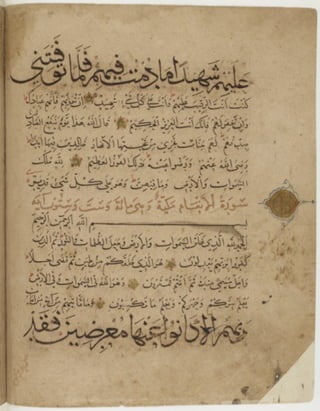 عليهم شهيدا ما دمت فيهم فلما توفيتني
كنت أنت الرقيب عليهم وأنت على كل شيء شهيد إن تعذبهم فإنهم عبادك
وإن تغفر لهم فإنك أنت العزيز الحكيم قال الله هذا يوم ينفع الصادقين
صدقهم لهم جنات تجري من تحتها الأنهار خالدين فيها أبدا
رضي الله عنهم ورضوا عنه ذلك الفوز العظيم لله ملك
السموات والأرض وما فيهن وهو على كل شيء قدير
سورة الأنعام مكية وهي مائة وست وستون آية
بسم الله الرحمن الرحيم
الحمد لله الذي خلق السموات والأرض وجعل الظلمات والنور ثم الذين
كفروا بربهم يعدلون هو الذي خلقكم من طين ثم قضى أجلا
وأجل مسمى عنده ثم أنتم تمترون وهو الله في السموات وفي الأرض
يعلم سركم وجهركم ويعلم ما تكسبون وما تأتيهم من آية من آيات
ربهم إلا كانوا عنها معرضين فقد